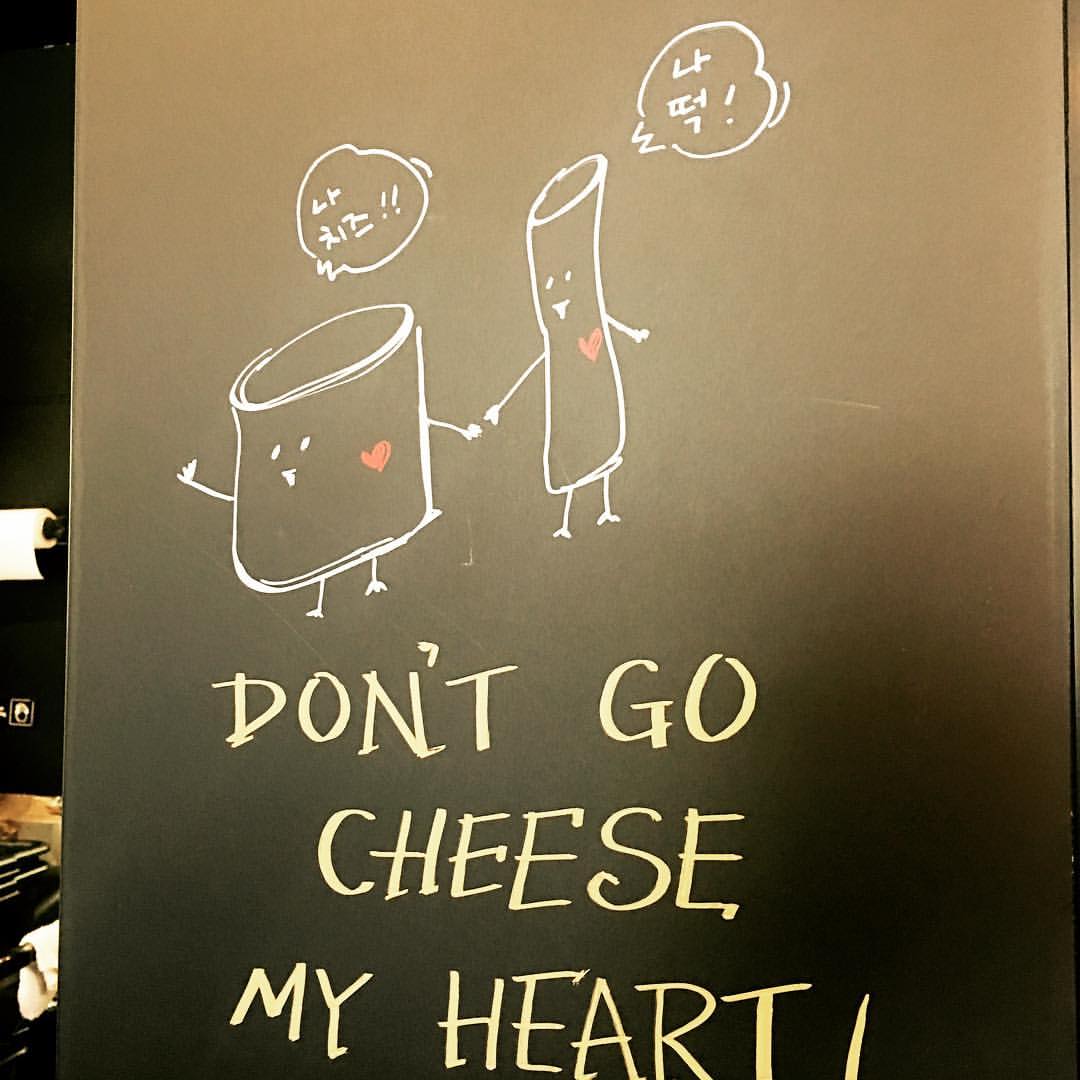 나
떡!
나
치즈!!
DON'T GO
CHEESE
MY HEART!